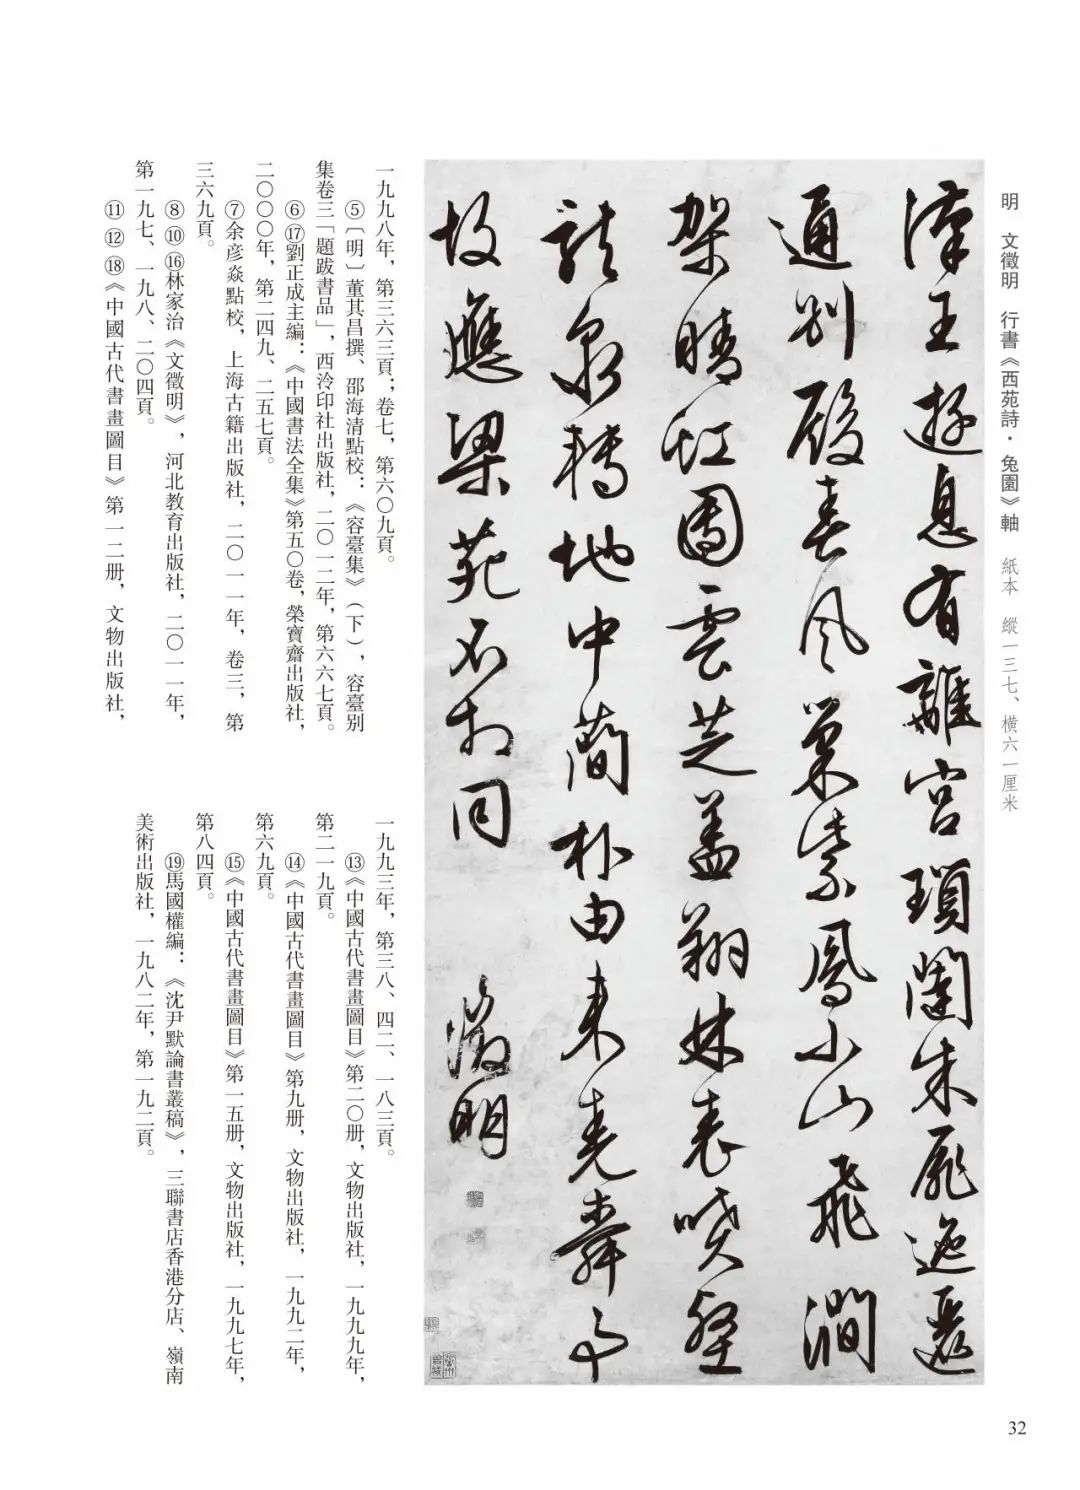 明　文徵明　行書《西苑詩·兔園》軸　紙本　縱一三七、橫六一厘米
漢王遊息有離宮瑣闥朱扉迤邐
通別殿春風巢紫鳳小山飛澗
架晴虹團雲芝蓋翔林表噴壑
龍泉轉地中簡朴由來堯舜事
故應梁苑不相同
徵明
一九九八年，第三六三頁；卷七，第六〇九頁。
⑤〔明〕董其昌撰、邵海清點校：《容臺集》（下），容臺別
集卷三「題跋書品」，西泠印社出版社，二〇一二年，第六六七頁。
⑥⑰劉正成主編：《中國書法全集》第五〇卷，榮寶齋出版社，
二〇〇〇年，第二四九、二五七頁。
⑦余彦焱點校，上海古籍出版社，二〇一一年，卷三，第
三六九頁。
⑧⑩⑯林家治《文徵明》，河北教育出版社，二〇一一年，
第一九七、一九八、二〇四頁。
⑪⑫⑱《中國古代書畫圖目》第一二册，文物出版社，
一九九三年，第三八、四二、一八三頁。
⑬《中國古代書畫圖目》第二〇册，文物出版社，一九九九年，
第二一九頁。
⑭《中國古代書畫圖目》第九册，文物出版社，一九九二年，
第六九頁。
⑮《中國古代書畫圖目》第一五册，文物出版社，一九九七年，
第八四頁。
⑲馬國權編：《沈尹默論書叢稿》，三聯書店香港分店、嶺南
美術出版社，一九八二年，第一九二頁。
32